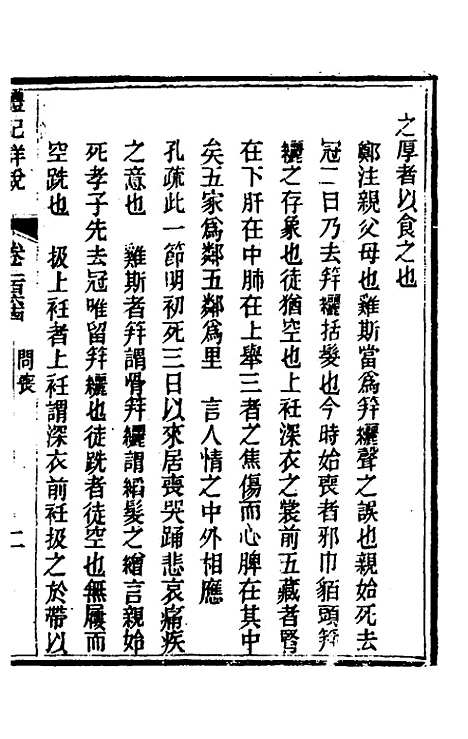 之厚者以食之也
鄭注親父母也雞斯當爲笄纚聲之誤也親始死去
冠二日乃去笄纚括髮也今時始喪者邪巾貊頭笄
纚之存象也徒猶空也上衽深衣之裳前五藏者腎
在下肝在中肺在上舉三者之焦傷而心脾在其中
矣五家爲鄰五鄰爲里　言人情之中外相應
孔疏此一節明初死三日以來居喪哭踊悲哀痛疾
之意也　雞斯者笄謂骨笄纚謂縚髮之繒言親始
死孝子先去冠唯留笄纚也徒跣者徒空也無屨而
空跣也　扱上衽者上衽謂深衣前衽扱之於帶以
禮記詳說　卷一百　問喪　二